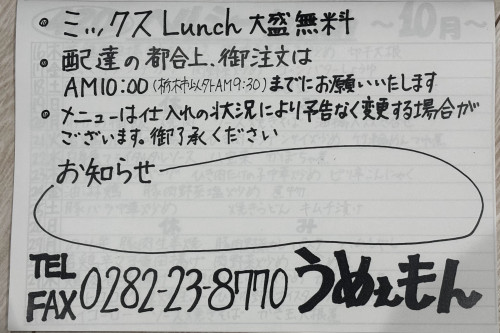 • ミックスLunch大盛無料
• 配達の都合上、御注文は
AM10:00(栃木市以外AM9:30)までにお願いいたします
• メニューは仕入れの状況により予告なく変更する場合が
ございます。御了承ください
お知らせ
TEL
FAX 0282-23-8770 うめぇもん